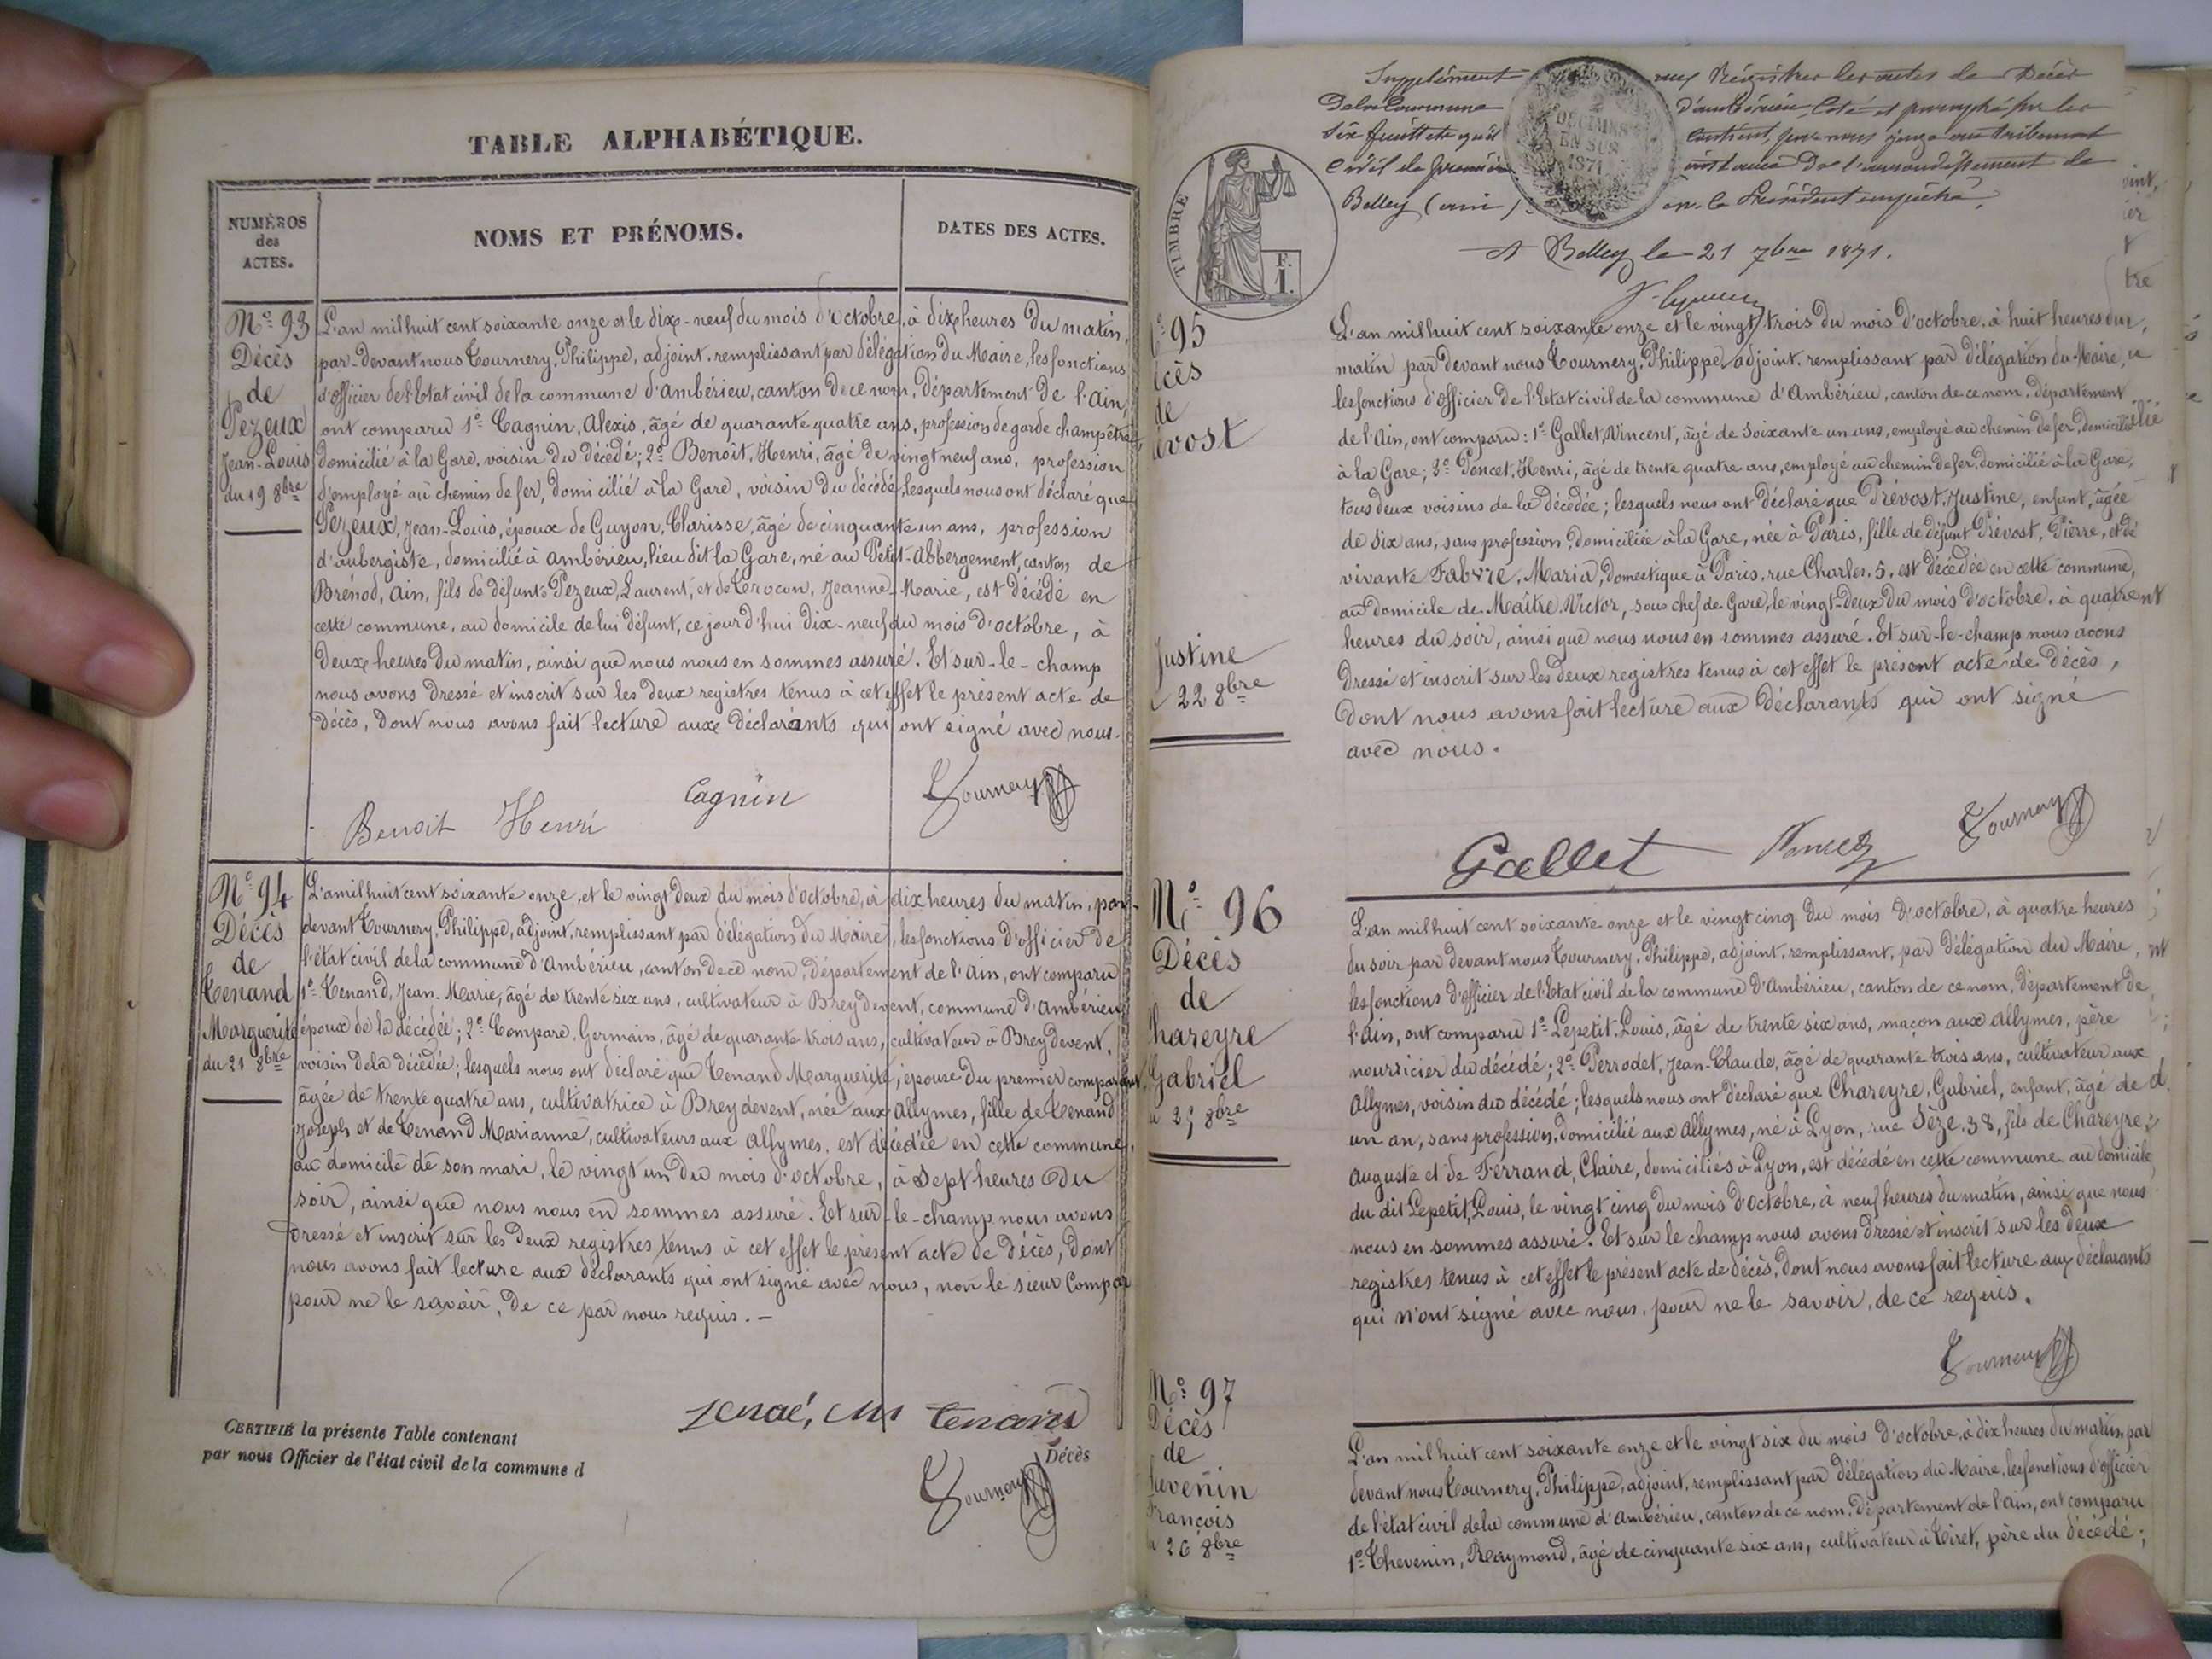 TABLE ALPHABÉTIQUE.
NUMÉROS
des
ACTES.
NOMS ET PRÉNOMS.
DATES DES ACTES.
No 93
Décès
de
Pezeux
Jean-Louis
du 19 8bre
L'an mil huit cent soixante onze et le dix-neuf du mois d'octobre, à dix heures du matin,
par-devant nous Tournery, Philippe, adjoint, remplissant par délégation du Maire, les fonctions
d'officier de l'Etat civil de la commune d'Ambérieu, canton de ce nom, département de l'Ain,
ont comparu 1o Cagnin, Alexis, âgé de quarante quatre ans, profession de garde champêtre
domicilié à la Gare, voisin du décédé; 2o Benoît, Henri, âgé de vingt neuf ans, profession
d'employé au chemin de fer, domicilié à la Gare, voisin du décédé, lesquels nous ont déclaré que
Pezeux, Jean-Louis, époux de Guyon, Clarisse, âgé de cinquante un ans, profession
d'aubergiste, domicilié à Ambérieu, lieu dit la Gare, né au Petit-Abbergement, canton de
Brénod, Ain, fils de défunts Pezeux, Laurent, et de Trocon, Jeanne-Marie, est décédé en
cette commune, au domicile de lui défunt, ce jour d'hui dix-neuf du mois d'octobre, à
deux heures du matin, ainsi que nous nous en sommes assuré. Et sur-le-champ
nous avons dressé et inscrit sur les deux registres tenus à cet effet le présent acte de
décès, dont nous avons fait lecture aux déclarants qui ont signé avec nous.
Benoit Henri Cagnin Tournery
No 94
Décès
de
Tenand
Marguerite
du 21 8bre
L'amil huit cent soixante onze, et le vingt deux du mois d'octobre, à dix heures du matin, par-
devant Tournery, Philippe, adjoint, remplissant par délégation du Maire, les fonctions d'officier de
l'état civil de la commune d'Ambérieu, canton de ce nom, département de l'Ain, ont comparu
1o Tenand, Jean-Marie, âgé de trente six ans, cultivateur à Breydevent, commune d'Ambérieu,
époux de la décédée; 2o Compare, Germain, âgé de quarante trois ans, cultivateur à Breydevent,
voisin de la décédée; lesquels nous ont déclaré que Tenand Marguerite, épouse du premier comparant,
âgée de trente quatre ans, cultivatrice à Breydevent, née aux Allymes, fille de Tenand
Joseph et de Tenand Marianne, cultivateurs aux Allymes, est décédée en cette commune,
au domicile de son mari, le vingt un du mois d'octobre, à sept heures du
soir, ainsi que nous nous en sommes assuré. Et sur-le-champ nous avons
dressé et inscrit sur les deux registres tenus à cet effet le présent acte de décès, dont
nous avons fait lecture aux déclarants qui ont signé avec nous, non le sieur Compar
pour ne le savoir, de ce par nous requis.
tenand
Tournery
CERTIFIÉ la présente Table contenant
Décès
par nous Officier de l'état civil de la commune d
Supplément aux Régistres les actes de Décès
De la Commune d'ambérieu, Coté et paraphé par les
Six feuillets qu'il contient, par nous juge au tribunal
civil de première instance De l'arrondissement de
Belley (ain) le Président empêché.
A Belley le 21 7bre 1871.
DECIMES
EN SUS
1871
TIMBRE
F.
1.
o 95
écès
de
évost
Justine
22 8bre
L'an mil huit cent soixante onze et le vingt trois du mois d'octobre, à huit heures du
matin par devant nous Tournery, Philippe, adjoint, remplissant par délégation du Maire,
les fonctions d'officier de l'Etat civil de la commune d'Ambérieu, canton de ce nom, département
de l'Ain, ont comparu: 1o Gallet, Vincent, âgé de soixante un ans, employé au chemin de fer, domicilié
à la Gare; 2o Poncet, Henri, âgé de trente quatre ans, employé au chemin de fer, domicilié à la Gare,
tous deux voisins de la décédée; lesquels nous ont déclaré que Prévost, Justine, enfant, âgée
de six ans, sans profession, domiciliée à la Gare, née à Paris, fille de défunt Prévost, Pierre, et de
vivante Fabvre, Maria, domestique à Paris, rue Charles, 5, est décédée en cette commune,
au domicile de Maître, Victor, sous chef de Gare, le vingt-deux du mois d'octobre, à quatre
heures du soir, ainsi que nous nous en sommes assuré. Et sur-le-champ nous avons
dressé et inscrit sur les deux registres tenus à cet effet le présent acte de décès,
dont nous avons fait lecture aux déclarants qui ont signé
avec nous.
Gallet Poncet Tournery
No 96
Décès
de
hareyre
Gabriel
25 8bre
L'an mil huit cent soixante onze et le vingt cinq du mois d'octobre, à quatre heures
du soir par devant nous Tournery, Philippe, adjoint, remplissant, par délégation du Maire,
les fonctions d'officier de l'Etat civil de la commune d'Ambérieu, canton de ce nom, département de
l'Ain, ont comparu 1o Lepetit, Louis, âgé de trente six ans, maçon aux Allymes, père
nourricier du décédé; 2o Perrodet, Jean-Claude, âgé de quarante trois ans, cultivateur aux
Allymes, voisin du décédé; lesquels nous ont déclaré que Chareyre, Gabriel, enfant, âgé de
un an, sans profession, domicilié aux Allymes, né à Lyon, rue Sèze, 38, fils de Chareyre,
Auguste et de Ferrand, Claire, domiciliés à Lyon, est décédé en cette commune au domicile
du dit Lepetit, Louis, le vingt cinq du mois d'octobre, à neuf heures du matin, ainsi que nous
nous en sommes assuré. Et sur le champ nous avons dressé et inscrit sur les deux
registres tenus à cet effet le présent acte de décès, dont nous avons fait lecture aux déclarants
qui n'ont signé avec nous, pour ne le savoir, de ce requis.
Tournery
No 97
Décès
de
hevenin
François
26 8bre
L'an mil huit cent soixante onze et le vingt six du mois d'octobre, à dix heures du matin, par
devant nous Tournery, Philippe, adjoint, remplissant par délégation du Maire, les fonctions d'officier
de l'état civil de la commune d'Ambérieu, canton de ce nom, département de l'Ain, ont comparu
1o Thevenin, Raymond, âgé de cinquante six ans, cultivateur à Tiret, père du décédé;